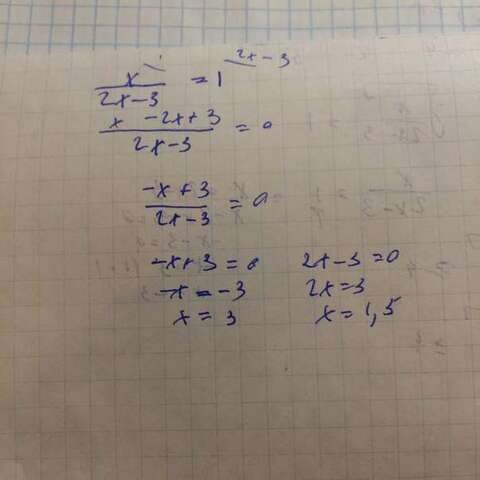 x/(2x-3) = 1 2x-3
(x -2x+3)/(2x-3) = 0
(-x+3)/(2x-3) = 0
-x+3=0 2x-3=0
-x=-3 2x=3
x=3 x=1,5